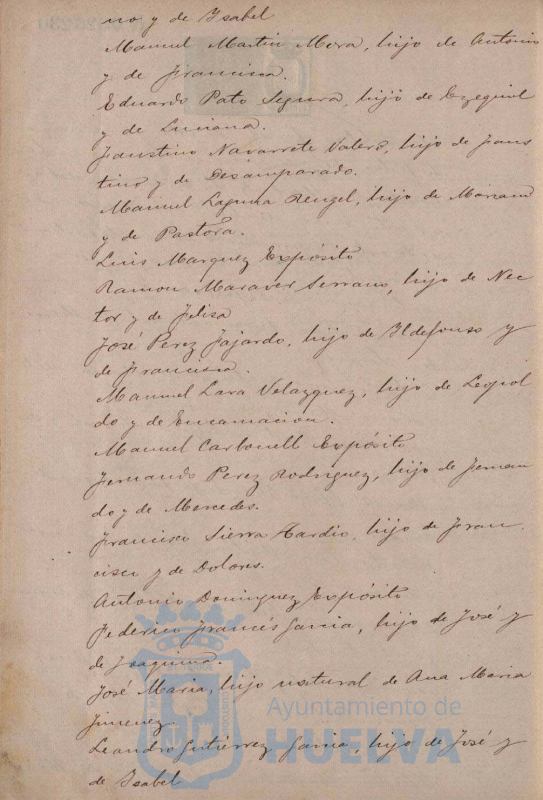 no y de Isabel
Manuel Martin Mora, hijo de Antonio
y de Francisca.
Eduardo Pato Segura, hijo de Ezequiel
y de Luciana.
Faustino Navarrete Valero, hijo de Faus
tino y de Desamparado.
Manuel Laguna Rengel, hijo de Mariano
y de Pastora.
Luis Marquez Expósito
Ramon Maraver Serrano, hijo de Nec
tor y de Felisa
José Perez Fajardo, hijo de Ildefonso y
de Francisca.
Manuel Lara Velazquez, hijo de Leopol
do y de Encarnacion.
Manuel Carbonell Expósito
Fernando Perez Rodriguez, hijo de Fernan
do y de Mercedes.
Francisco Sierra, hijo de Fran
cisco y de Dolores.
Antonio Dominguez Expósito
Federico Francés Garcia, hijo de José y
de Joaquina.
José Maria, hijo natural de Ana Maria
Jimenez.
Leandro Gutiérrez Garcia, hijo de José y
de Isabel
Ayuntamiento de
HUELVA